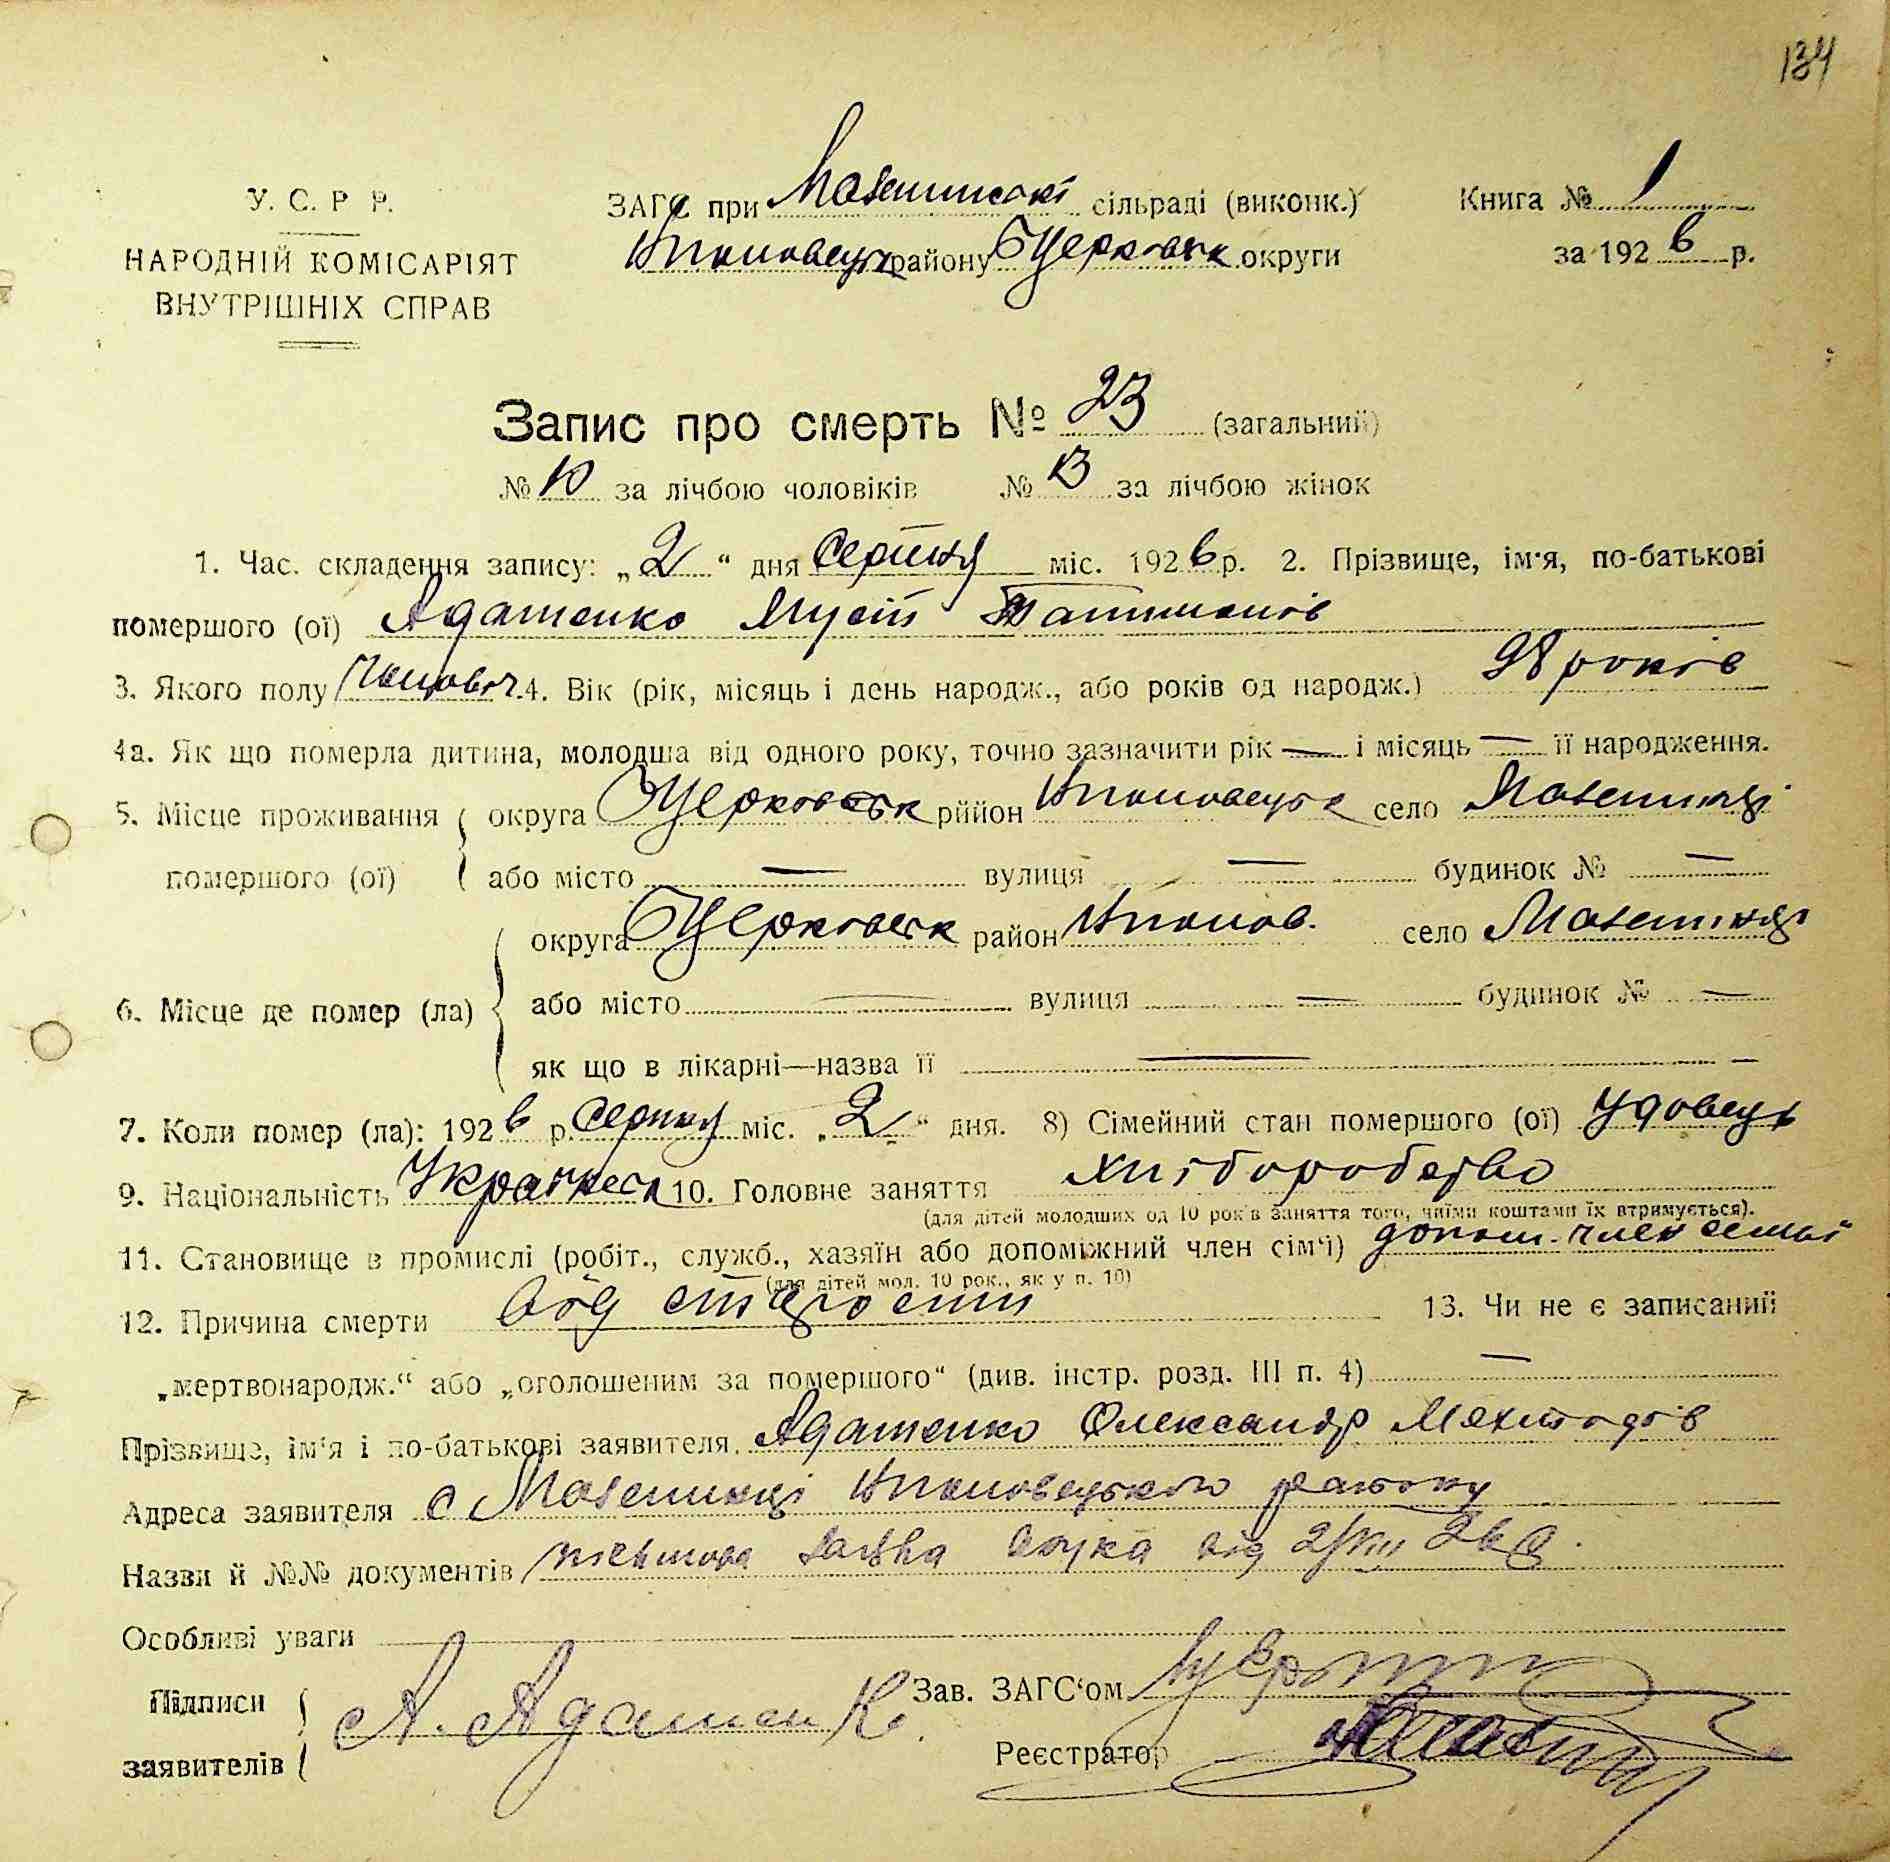 134
У. С. Р Р.
НАРОДНІЙ КОМІСАРІЯТ
ВНУТРІШНІХ СПРАВ
ЗАГС при сільраді (виконк.)
району Б Церковськ округи
Книга № 1
за 1926 р.
Запис про смерть № 23 (загальний)
№ 10 за лічбою чоловіків № 13 за лічбою жінок
1. Час. складення запису: „2“ дня Серпня міс. 1926 р. 2. Прізвище, ім'я, по-батькові
помершого (ої) Адаменко
3. Якого полу 4. Вік (рік, місяць і день народж., або років од народж.) 98 років
4а. Як що померла дитина, молодша від одного року, точно зазначити рік — і місяць — її народження.
5. Місце проживання округа Б Церковськ рййон село
помершого (ої) або місто — вулиця — будинок № —
округа Б Церковск район село
6. Місце де помер (ла) або місто — вулиця — будинок № —
як що в лікарні—назва її —
7. Коли помер (ла): 1926 р. Серпня міс. „2“ дня. 8) Сімейний стан помершого (ої) Удовець
9. Національність 10. Головне заняття хліборобство
(для дітей молодших од 10 рок'в заняття того, чиїми коштами їх втримується).
11. Становище в промислі (робіт., служб., хазяїн або допоміжний член сім'ї) допом. член семьї
(для дітей мол. 10 рок., як у п. 10)
12. Причина смерти від старости 13. Чи не є записаний
„мертвонародж.“ або „оголошеним за помершого“ (див. інстр. розд. III п. 4) —
Прізвище, ім'я і по-батькові заявителя. Адаменко Олександр
Адреса заявителя с району
Назви й №№ документів заява внука від 2/VIII 26 р.
Особливі уваги
Підписи
заявителів
А. Адаменко.
Зав. ЗАГС'ом
Реєстратор